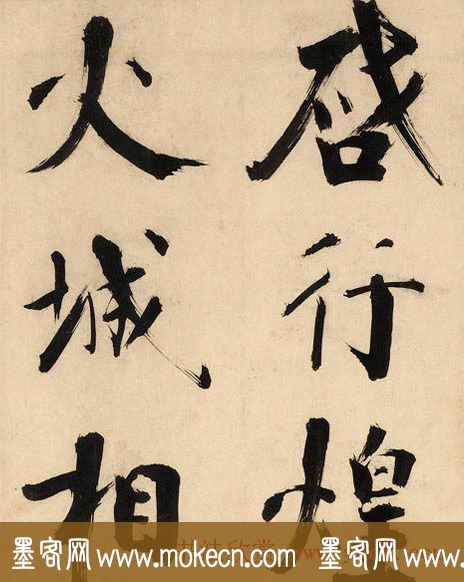 啓行煌
火城相
墨客网 www.mokecn.com 墨客网 www